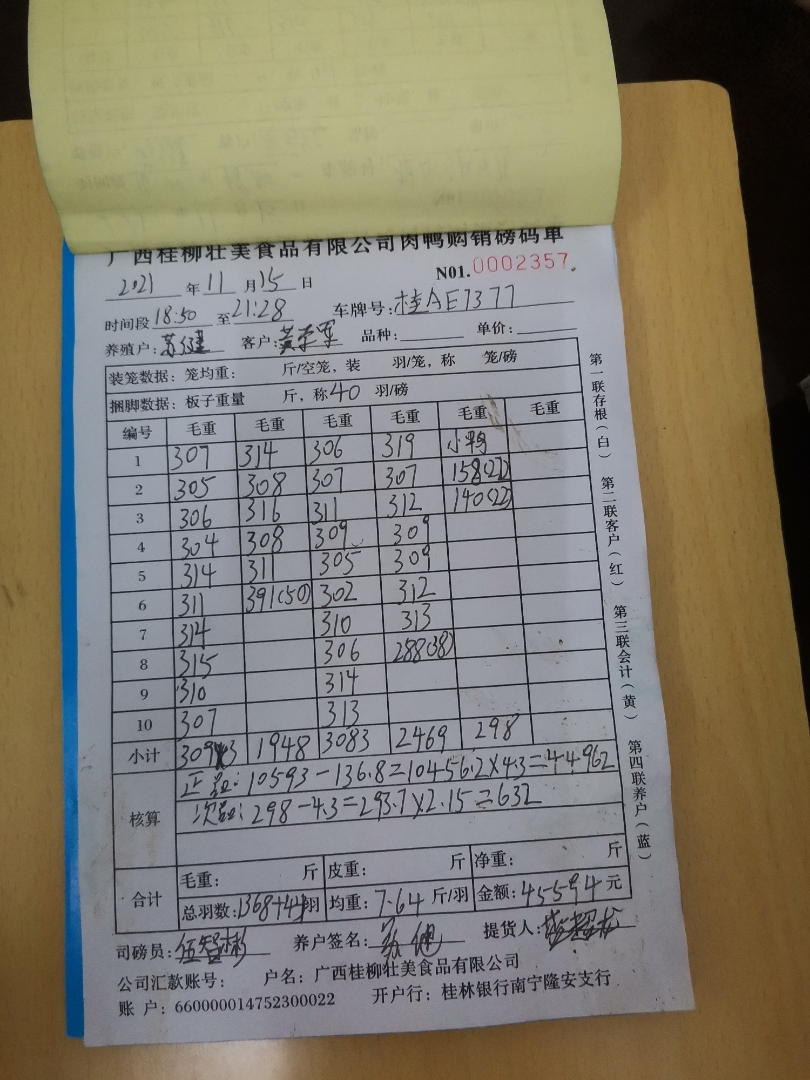 广西桂柳壮美食品有限公司肉鸭购销磅码单
2021 年 11 月 15 日 N01.0002357
时间段 18:50 至 21:28 车牌号: 桂AE7377
养殖户: 苏健 客户: 黄荣军 品种: 单价:
装笼数据: 笼均重: 斤/空笼, 装 羽/笼, 称 笼/磅
捆脚数据: 板子重量 斤, 称 40 羽/磅
编号 毛重 毛重 毛重 毛重 毛重 毛重
1 307 314 306 319 小鸭
2 305 308 307 307 158(22)
3 306 316 311 312 140(22)
4 304 308 309 309
5 314 311 305 309
6 311 391(50) 302 312
7 314 310 313
8 315 306 288(38)
9 310 314
10 307 313
小计 3093 1948 3083 2469 298
核算 正品: 10593-136.8=10456.2×4.3=44962
次品: 298-4.3=293.7×2.15=632
合计 毛重: 斤 皮重: 斤 净重: 斤
总羽数: 1368+44羽 均重: 7.64 斤/羽 金额: 45594 元
司磅员: 伍智彬 养户签名: 苏健 提货人:
公司汇款账号: 户名: 广西桂柳壮美食品有限公司
账 户: 660000014752300022 开户行: 桂林银行南宁隆安支行
第一联存根(白) 第二联客户(红) 第三联会计(黄) 第四联养户(蓝)